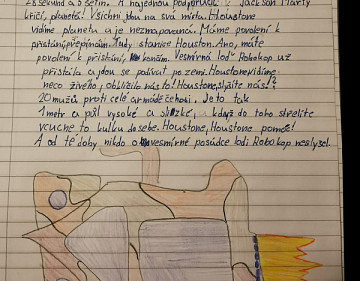 28 sekund a 6 setin. A najednou podporučík Jackson Marty
křičí, planeta! Všichni jdou na svá místa. Houstone
vidíme planetu a je nezmapovaná. Máme povolení k
přistání, přepínám. Tady stanice Houston. Ano, máte
povolení k přistání, konám. Vesmírná loď Robokop už
přistála a jdou se podívat po zemi. Houstone vidíme
neco živého, obklíčilo nás to! Houstone, slyšíte nás!?
20 mužů proti celé armádě čehosi. Je to tak
1 metr a půl vysoké a slizké, a když do toho střelíte
vcucne to kulku do sebe. Houstone, Houstone pomoc!
A od té doby nikdo o vesmírné posádce lodi Robokop neslyšel.